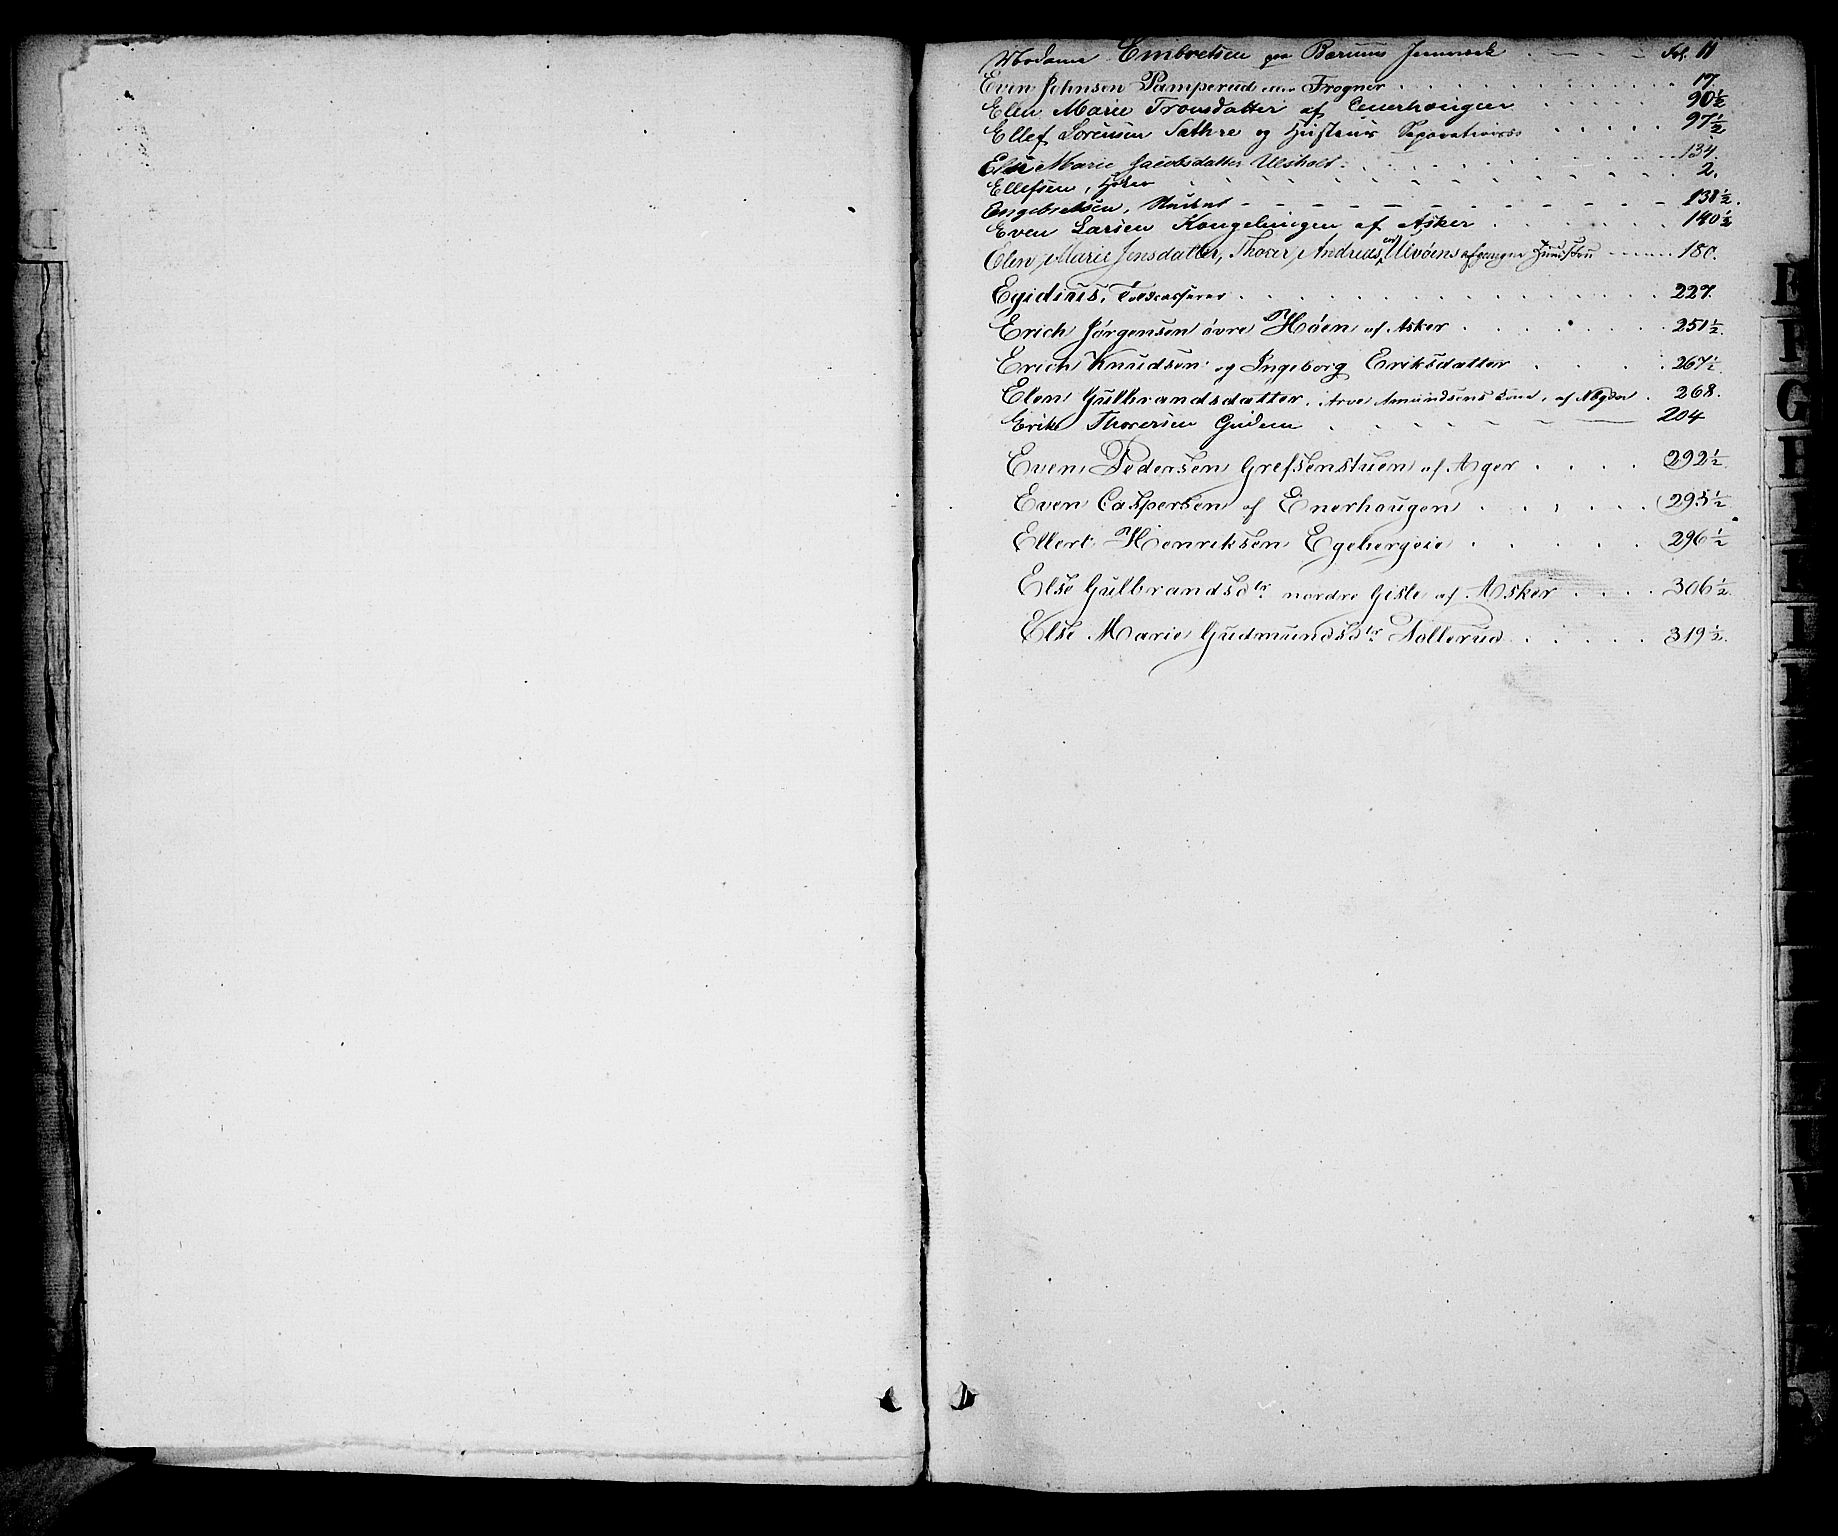 Madame Embretsen paa Bærums Jernværk . . . Fol. 11
Even Johnsen Pamperud Frogner . . . 17.
Elen Marie Tronsdatter af Enerhaugen . . . 90½
Ellef Sørensen Sathre og Hustrus Separations . . . 97½
Else Marie Jacobsdatter Ulsholt . . . 134.
Ellefsen, Høker . . . 2.
Engebretsen, Student . . . 138½.
Even Larsen Kongelungen af Asker . . . 140½
Elen Marie Jensdatter, Thorer Andreas Ulvøens afgangne Hustru . . . 180.
Egidius, Toldcasserer . . . 227.
Erich Jørgensen øvre Høen af Asker . . . 251½.
Erich Knudsen og Ingeborg Eriksdatter . . . 267½
Elen Gulbrandsdatter, Arve Amundsens Kone, af . . . 268.
Erik Thoresen Gudem . . . 204
Even Pedersen Grefsenstuen af Ager . . . 292½.
Even Caspersen af Enerhaugen . . . 295½
Ellert Henriksen Egebergeie . . . 296½
Else Gulbrandsdtr nordre Gisle af Asker . . . 306½.
Else Marie Gudmundsdtr Sollerud . . . 319½.
D
E
F
G
H